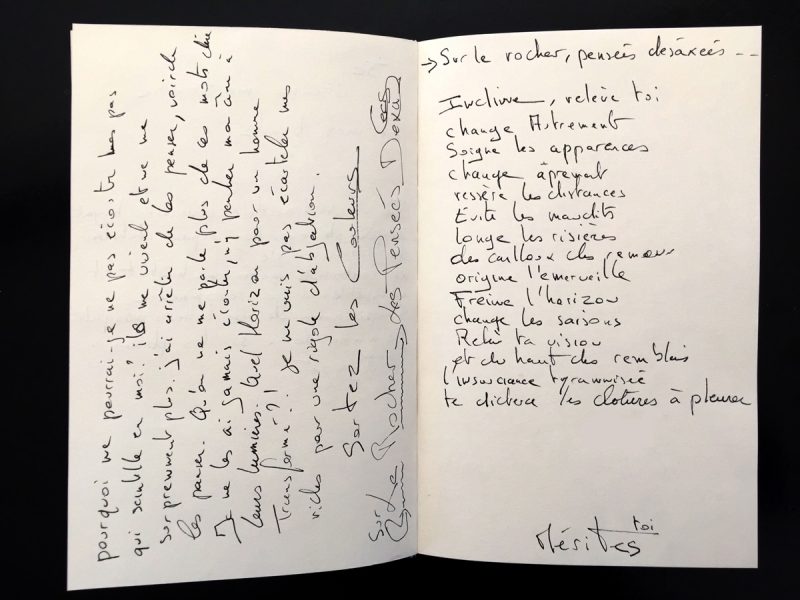 pourquoi ne pourrai-je ne pas mes pas
qui semble en moi? ils me vivent et ne me
surprennent plus. j'ai arrêté de les penser, voire de
les panser. Qu'on ne me parle plus de ces mots
Je ne les ai jamais n'y pencher mon âme à
leurs lumières. Quel Horizon pour un homme
Transformé..?! Je ne vais pas écarteler mes
vides pour une rigole d'abjection.
Sortez les Couleurs
Sur Le Rocher des Pensées
→ Sur le rocher, pensées desáxées - -
Incline, relève toi
change Autrement
Soigne les apparences
change âprement
ressère les distances
Évite les maudits
longe les risières
des cailloux des remous
origine l'emerveille
Freine l'horizon
change les saisons
ta vision
et du haut des remblais
l'insouciance tyrannisée
te dictera les clotures à pleurer
toi
Mérites